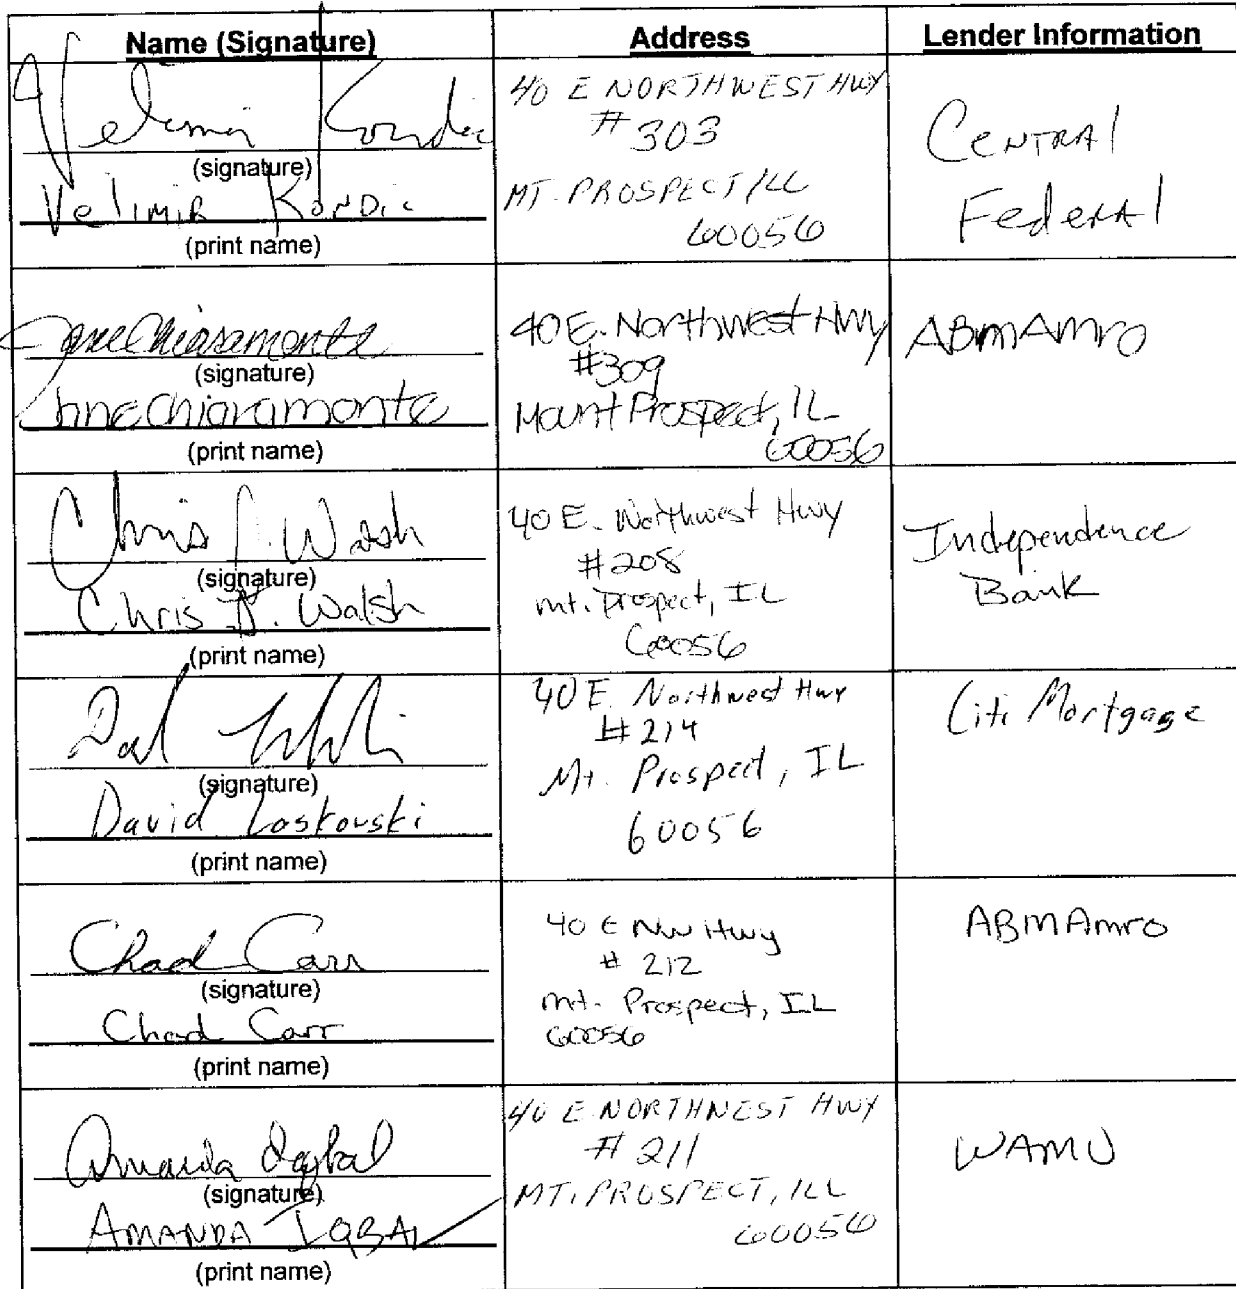 Name (Signature)
Address
Lender Information
Velimir Kondic
(signature)
Velimir Kondic
(print name)
40 E NORTHWEST HWY
#303
MT. PROSPECT ILL
60056
Central
Federal
Jane Chiaramonte
(signature)
Jane Chiaramonte
(print name)
40 E. Northwest Hwy
#309
Mount Prospect, IL
60056
ABMAmro
Chris J. Walsh
(signature)
Chris J. Walsh
(print name)
40 E. Northwest Hwy
#208
mt. Prospect, IL
60056
Independence
Bank
(signature)
David Loskovski
(print name)
40 E. Northwest Hwy
#214
Mt. Prospect, IL
60056
Citi Mortgage
Chad Carr
(signature)
Chad Carr
(print name)
40 E NW Hwy
# 212
mt. Prospect, IL
60056
ABMAmro
Amanda Iqbal
(signature)
AMANDA IQBAL
(print name)
40 E NORTHWEST HWY
# 211
MT. PROSPECT, ILL
60056
WAMU